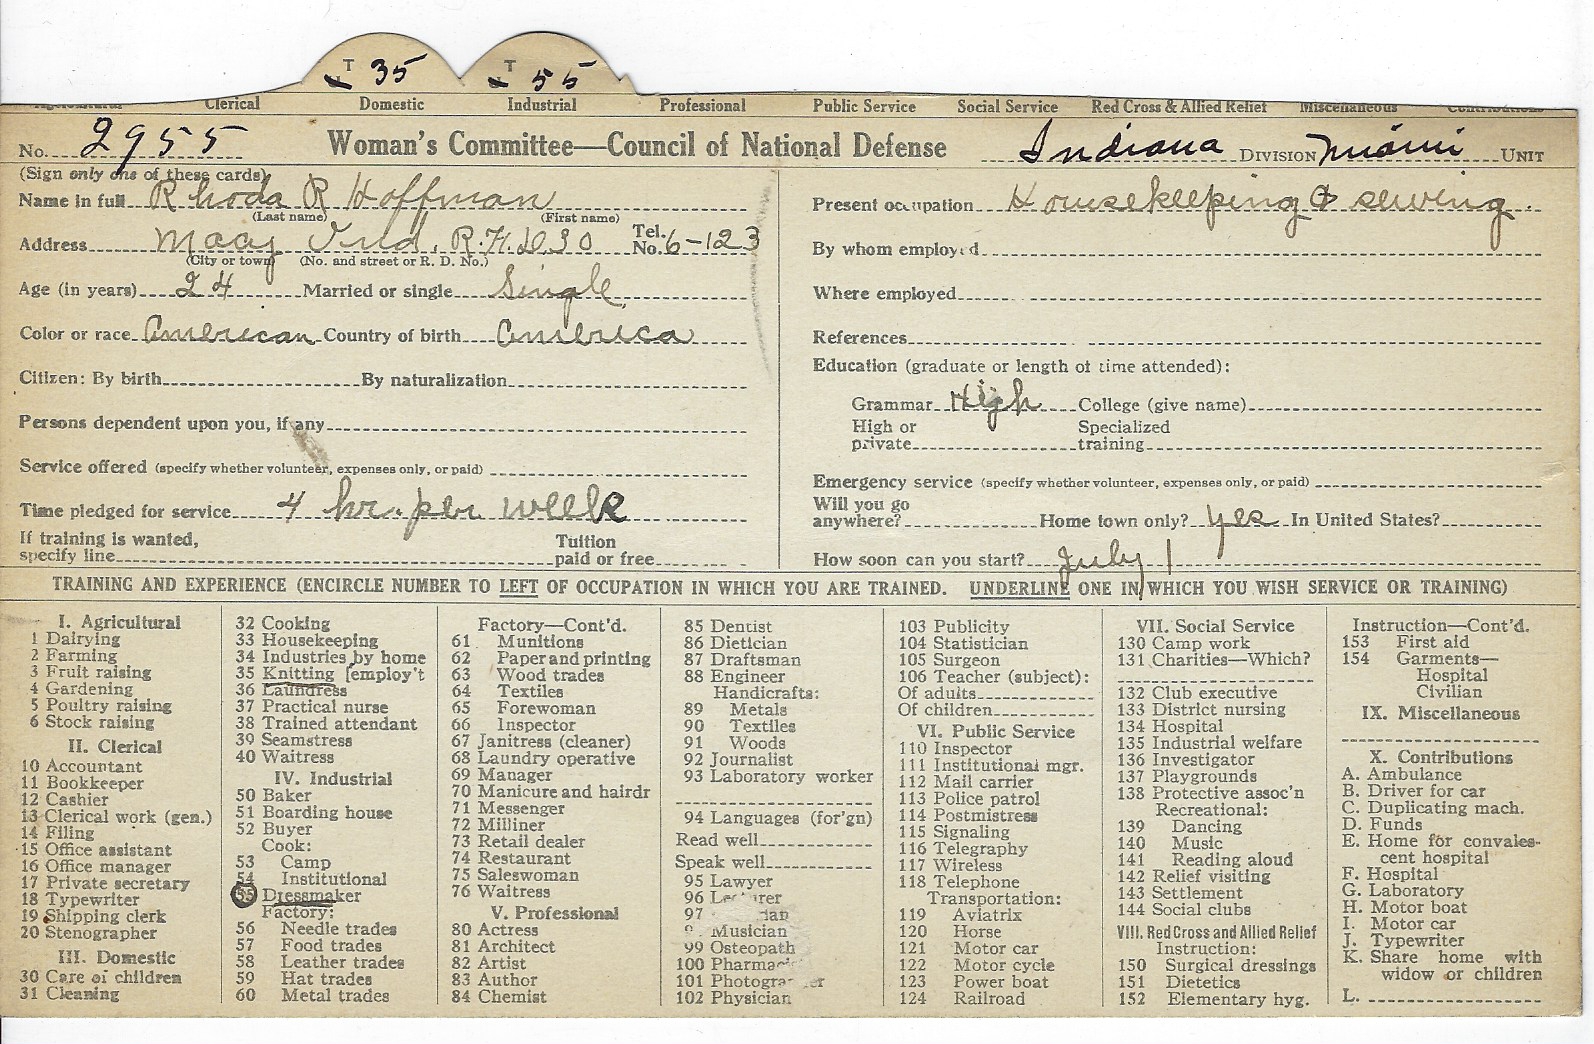 T 35 T 55
Clerical Domestic Industrial Professional Public Service Social Service Red Cross & Allied Relief Miscellaneous Contributions
No. 2955 Woman's Committee—Council of National Defense Indiana DIVISION Miami UNIT
(Sign only one of these cards)
Name in full Rhoda R Hoffman
(Last name) (First name)
Address Macy Ind. R.F.D. 30 Tel. No. 6-123
(City or town) (No. and street or R. D. No.)
Age (in years) 24 Married or single Single
Color or race American Country of birth America
Citizen: By birth By naturalization
Persons dependent upon you, if any
Service offered (specify whether volunteer, expenses only, or paid)
Time pledged for service 4 hr. per week
If training is wanted, specify line Tuition paid or free
Present occupation Housekeeping & sewing.
By whom employed
Where employed
References
Education (graduate or length of time attended):
Grammar High College (give name)
High or private Specialized training
Emergency service (specify whether volunteer, expenses only, or paid)
Will you go anywhere? Home town only? Yes In United States?
How soon can you start? July 1
TRAINING AND EXPERIENCE (ENCIRCLE NUMBER TO LEFT OF OCCUPATION IN WHICH YOU ARE TRAINED. UNDERLINE ONE IN WHICH YOU WISH SERVICE OR TRAINING)
I. Agricultural
1 Dairying
2 Farming
3 Fruit raising
4 Gardening
5 Poultry raising
6 Stock raising
II. Clerical
10 Accountant
11 Bookkeeper
12 Cashier
13 Clerical work (gen.)
14 Filing
15 Office assistant
16 Office manager
17 Private secretary
18 Typewriter
19 Shipping clerk
20 Stenographer
III. Domestic
30 Care of children
31 Cleaning
32 Cooking
33 Housekeeping
34 Industries by home
35 Knitting [employ't
36 Laundress
37 Practical nurse
38 Trained attendant
39 Seamstress
40 Waitress
IV. Industrial
50 Baker
51 Boarding house
52 Buyer
Cook:
53 Camp
54 Institutional
55 Dressmaker
Factory:
56 Needle trades
57 Food trades
58 Leather trades
59 Hat trades
60 Metal trades
Factory—Cont'd.
61 Munitions
62 Paper and printing
63 Wood trades
64 Textiles
65 Forewoman
66 Inspector
67 Janitress (cleaner)
68 Laundry operative
69 Manager
70 Manicure and hairdr
71 Messenger
72 Milliner
73 Retail dealer
74 Restaurant
75 Saleswoman
76 Waitress
V. Professional
80 Actress
81 Architect
82 Artist
83 Author
84 Chemist
85 Dentist
86 Dietician
87 Draftsman
88 Engineer
Handicrafts:
89 Metals
90 Textiles
91 Woods
92 Journalist
93 Laboratory worker
94 Languages (for'gn)
Read well
Speak well
95 Lawyer
96 Lecturer
97
Musician
99 Osteopath
100 Pharmacist
101 Photographer
102 Physician
103 Publicity
104 Statistician
105 Surgeon
106 Teacher (subject):
Of adults
Of children
VI. Public Service
110 Inspector
111 Institutional mgr.
112 Mail carrier
113 Police patrol
114 Postmistress
115 Signaling
116 Telegraphy
117 Wireless
118 Telephone
Transportation:
119 Aviatrix
120 Horse
121 Motor car
122 Motor cycle
123 Power boat
124 Railroad
VII. Social Service
130 Camp work
131 Charities—Which?
132 Club executive
133 District nursing
134 Hospital
135 Industrial welfare
136 Investigator
137 Playgrounds
138 Protective assoc'n
Recreational:
139 Dancing
140 Music
141 Reading aloud
142 Relief visiting
143 Settlement
144 Social clubs
VIII. Red Cross and Allied Relief
Instruction:
150 Surgical dressings
151 Dietetics
152 Elementary hyg.
Instruction—Cont'd.
153 First aid
154 Garments—
Hospital
Civilian
IX. Miscellaneous
X. Contributions
A. Ambulance
B. Driver for car
C. Duplicating mach.
D. Funds
E. Home for convales-
cent hospital
F. Hospital
G. Laboratory
H. Motor boat
I. Motor car
J. Typewriter
K. Share home with
widow or children
L.